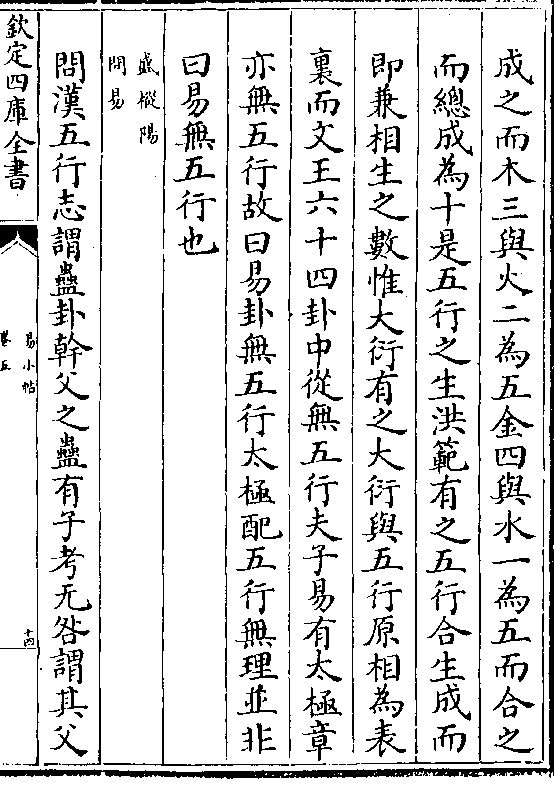 成之而木三與火二為五金四與水一為五而合之
而總成為十是五行之生洪範有之五行合生成而
即兼相生之數惟大衍有之大衍與五行原相為表
裏而文王六十四卦中從無五行夫子易有太極章
亦無五行故曰易卦無五行太極配五行無理並非
曰易無五行也
盛樅陽
問易
問漢五行志謂蠱卦幹父之蠱有子考无咎謂其父
欽定四庫全書
易小帖
卷五
十四